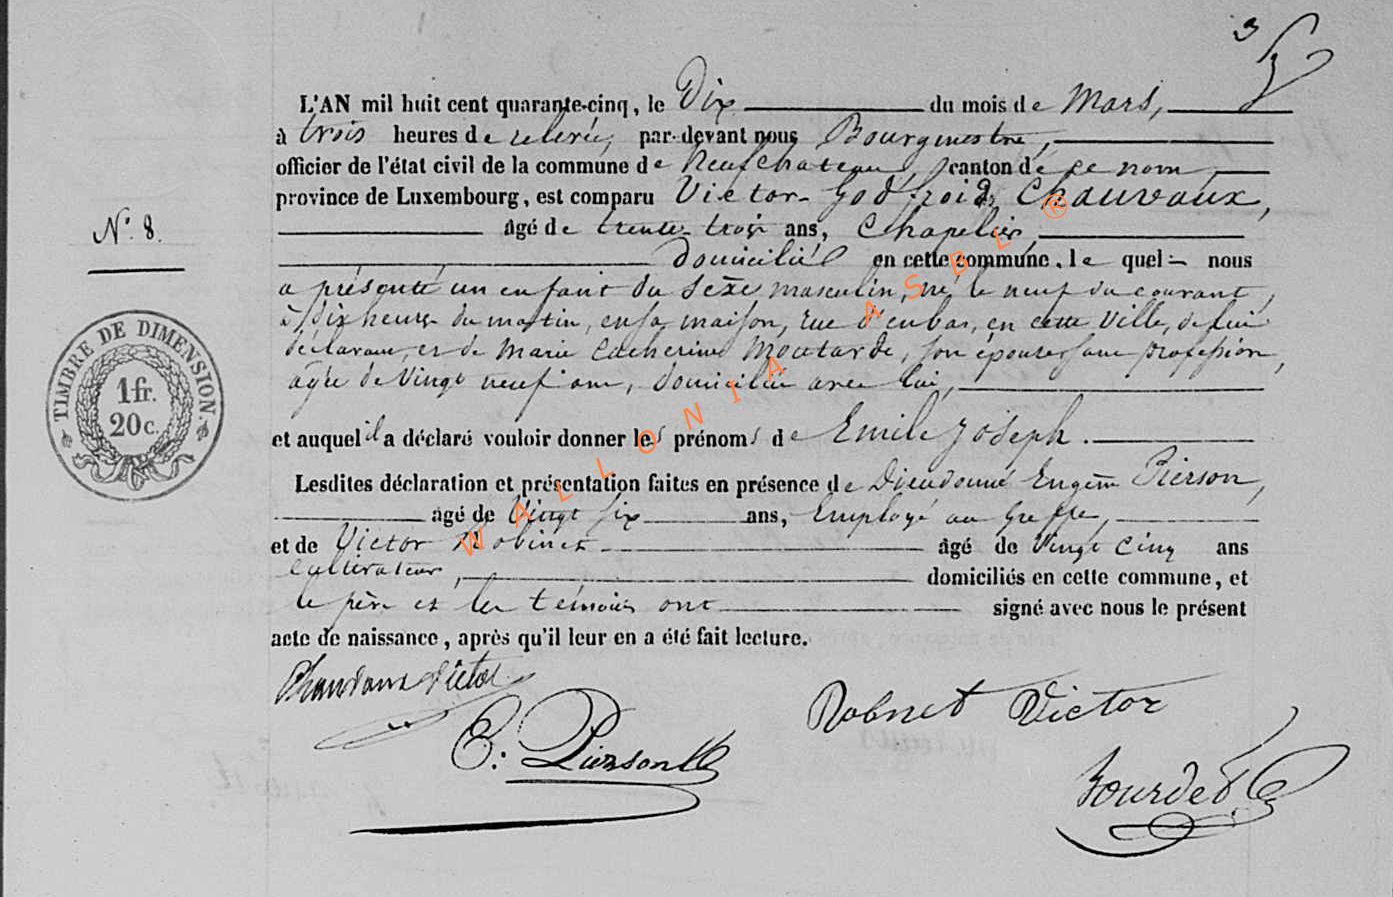 3
L'AN mil huit cent quarante-cinq, le Dix du mois de Mars,
à trois heures de relevée, par-devant nous Bourgmestre,
officier de l'état civil de la commune de Neufchateau, canton de ce nom,
province de Luxembourg, est comparu Victor-Godfroid Chauvaux,
N.° 8.
âgé de trente-trois ans, Chapelier,
domicilié en cette commune, le quel nous
a présenté un enfant du sexe masculin, né le neuf du courant,
à dix heures du matin, en sa maison, rue d'enbas, en cette Ville, de lui
déclarant, et de Marie Catherine Moutarde, son épouse sans profession,
agée de Vingt neuf ans, domiciliée avec lui,
et auquel il a déclaré vouloir donner les prénoms de Emile Joseph.
Lesdites déclaration et présentation faites en présence de Dieudonné Eugène Pierson,
âgé de Vingt six ans, Employé au Greffe,
et de Victor Robinet âgé de Vingt cinq ans
Cultivateur, domiciliés en cette commune, et
le père et les témoins ont signé avec nous le présent
acte de naissance, après qu'il leur en a été fait lecture.
TIMBRE DE DIMENSION.
1 fr.
20 c.
Chauvaux Victor
E. Pierson
Robinet Victor
WALLONIA ASBL ®